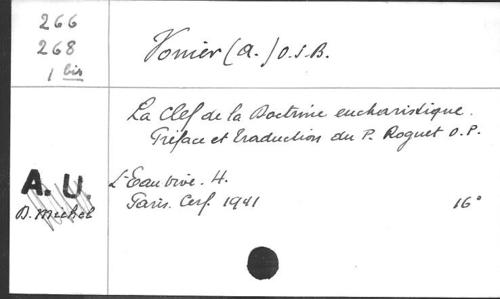 266
268
1 bis
Vonier (A.) O.S.B.
La Clef de la Doctrine eucharistique.
Préface et traduction du P. Roguet O.P.
A. U.
D. Michel
L'Eau vive. 4.
Paris. Cerf. 1941
16°